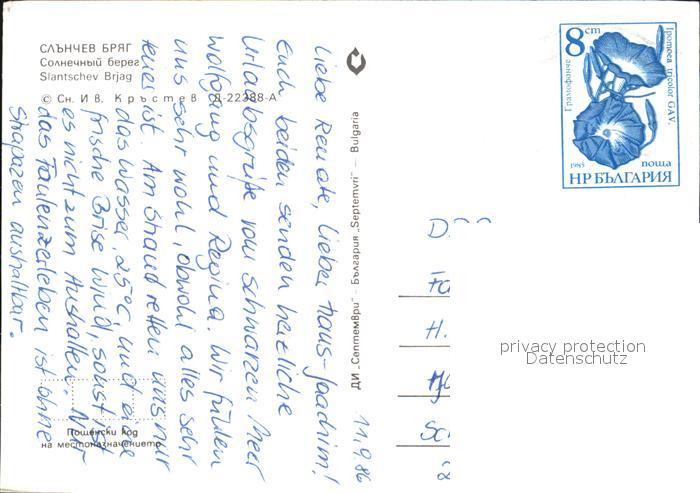 СЛЪНЧЕВ БРЯГ
Солнечный берег
Slantschev Brjag
© Сн. И в. Кръстев Д-22388-А
11.9.86
Liebe Renate, lieber Hans-Joachim!
Euch beiden senden herzliche
Urlaubsgrüße vom Schwarzen Meer
Wolfgang und Regina. Wir fühlen
uns sehr wohl, obwohl alles sehr
teuer ist. Am Strand retten uns nur
das Wasser, 25°C, und eine
frische Brise Wind, sonst ist
es nicht zum Aushalten. Nur
das Faulenzerleben ist ohne
Strapazen aushaltbar.
Пощенски код
на местоназначението
ДИ „Септември" – България „Septemvri" – Bulgaria
8 ст
Грамофонче
Ipomoea tricolor GAV.
1985
поща
НР БЪЛГАРИЯ
D
Fa
H.
Sc
2
privacy protection
Datenschutz